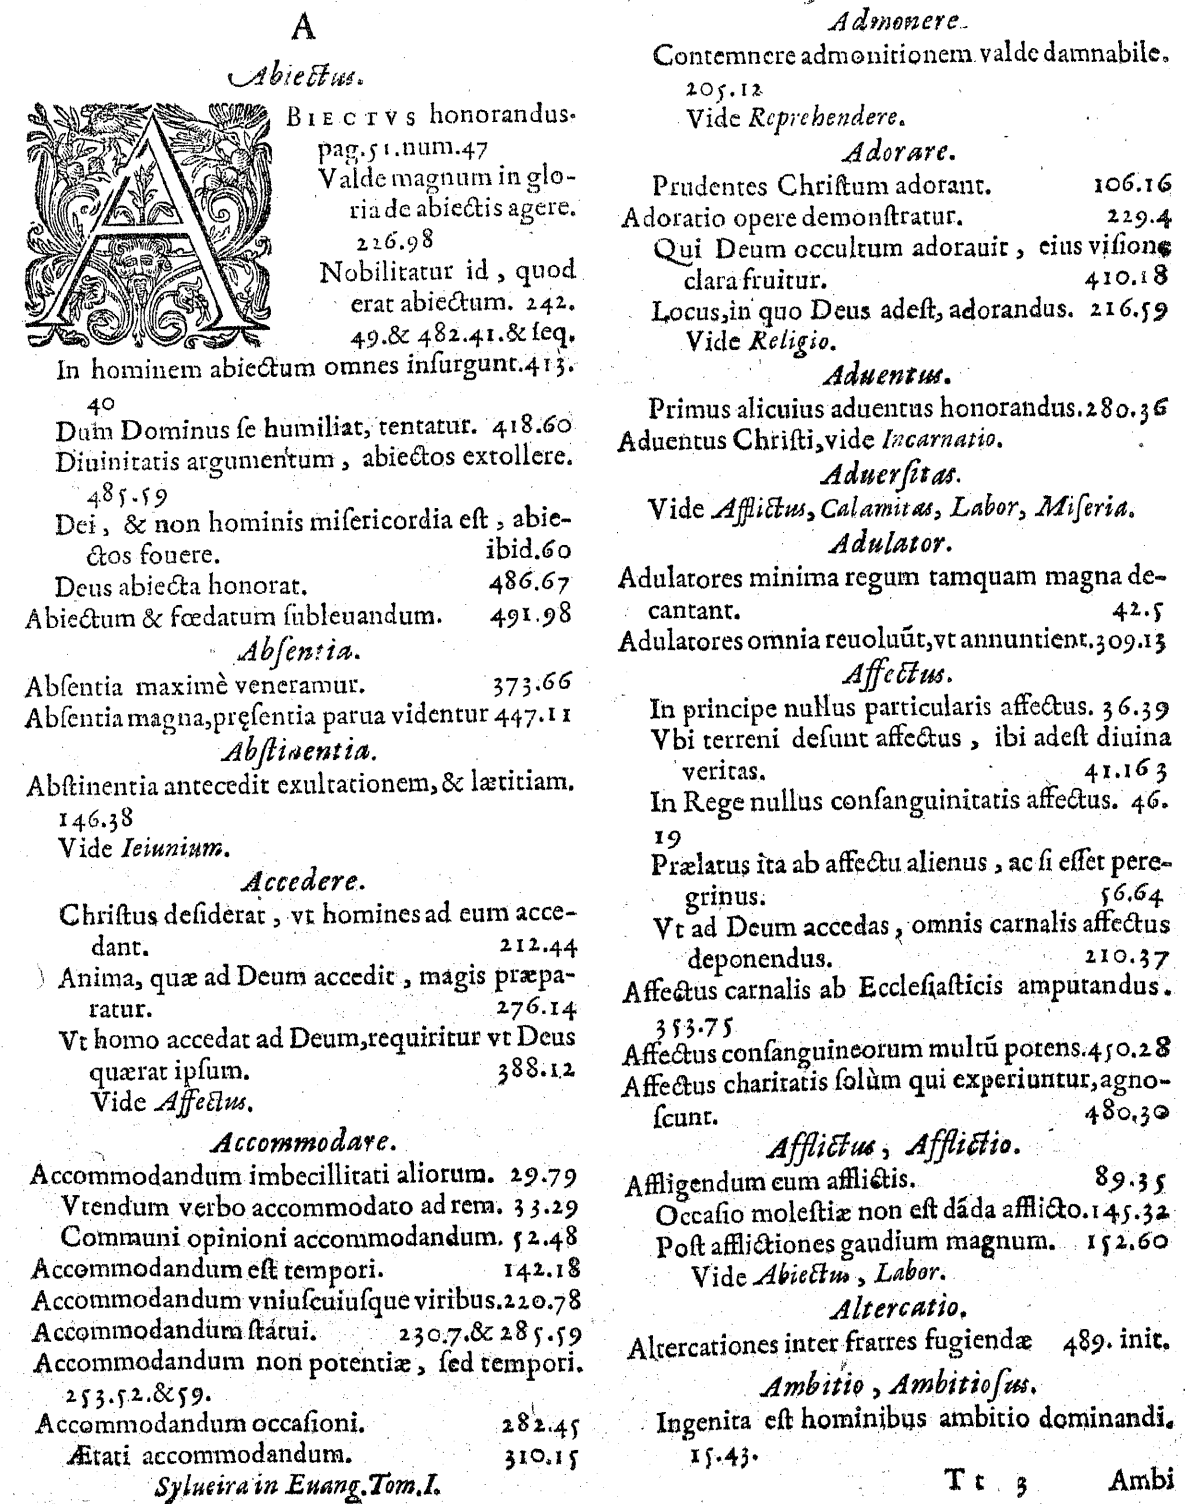 A
Abiectus.
ABIECTVS honorandus.
pag.51.num.47
Valde magnum in glo-
ria de abiectis agere.
226.98
Nobilitatur id, quod
erat abiectum. 242.
49.& 482.41.& ſeq.
In hominem abiectum omnes inſurgunt.413.
40
Dum Dominus ſe humiliat, tentatur. 418.60
Diuinitatis argumentum, abiectos extollere.
485.59
Dei, & non hominis miſericordia eſt, abie-
ctos fouere. ibid.60
Deus abiecta honorat. 486.67
Abiectum & fœdatum ſubleuandum. 491.98
Abſentia.
Abſentia maximè veneramur. 373.66
Abſentia magna,pręſentia parua videntur 447.11
Abſtinentia.
Abſtinentia antecedit exultationem,& lætitiam.
146.38
Vide Ieiunium.
Accedere.
Chriſtus deſiderat, vt homines ad eum acce-
dant. 212.44
Anima, quæ ad Deum accedit, magis præpa-
ratur. 276.14
Vt homo accedat ad Deum,requiritur vt Deus
quærat ipſum. 388.12
Vide Affectus.
Accommodare.
Accommodandum imbecillitati aliorum. 29.79
Vtendum verbo accommodato ad rem. 33.29
Communi opinioni accommodandum. 52.48
Accommodandum eſt tempori. 142.18
Accommodandum vniuſcuiuſque viribus.220.78
Accommodandum ſtatui. 230.7.& 285.59
Accommodandum non potentiæ, ſed tempori.
253.52.&59.
Accommodandum occaſioni. 282.45
Ætati accommodandum. 310.15
Sylueira in Euang.Tom.I.
Admonere.
Contemnere admonitionem valde damnabile.
205.12
Vide Reprehendere.
Adorare.
Prudentes Chriſtum adorant. 106.16
Adoratio opere demonſtratur. 229.4
Qui Deum occultum adorauit, eius viſione
clara fruitur. 410.18
Locus,in quo Deus adeſt, adorandus. 216.59
Vide Religio.
Aduentus.
Primus alicuius aduentus honorandus.280.36
Aduentus Chriſti,vide Incarnatio.
Aduerſitas.
Vide Afflictus, Calamitas, Labor, Miſeria.
Adulator.
Adulatores minima regum tamquam magna de-
cantant. 42.5
Adulatores omnia reuoluūt,vt annuntient.309.13
Affectus.
In principe nullus particularis affectus. 36.39
Vbi terreni deſunt affectus, ibi adeſt diuina
veritas. 41.163
In Rege nullus conſanguinitatis affectus. 46.
19
Prælatus ita ab affectu alienus, ac ſi eſſet pere-
grinus. 56.64
Vt ad Deum accedas, omnis carnalis affectus
deponendus. 210.37
Affectus carnalis ab Eccleſiaſticis amputandus.
353.75
Affectus conſanguineorum multū potens.450.28
Affectus charitatis ſolùm qui experiuntur,agno-
ſcunt. 480.30
Afflictus, Afflictio.
Affligendum cum afflictis. 89.35
Occaſio moleſtiæ non eſt dāda afflicto.145.32
Poſt afflictiones gaudium magnum. 152.60
Vide Abiectus, Labor.
Altercatio.
Altercationes inter fratres fugiendæ 489. init.
Ambitio, Ambitioſus.
Ingenita eſt hominibus ambitio dominandi.
15.43.
Tt 3 Ambi